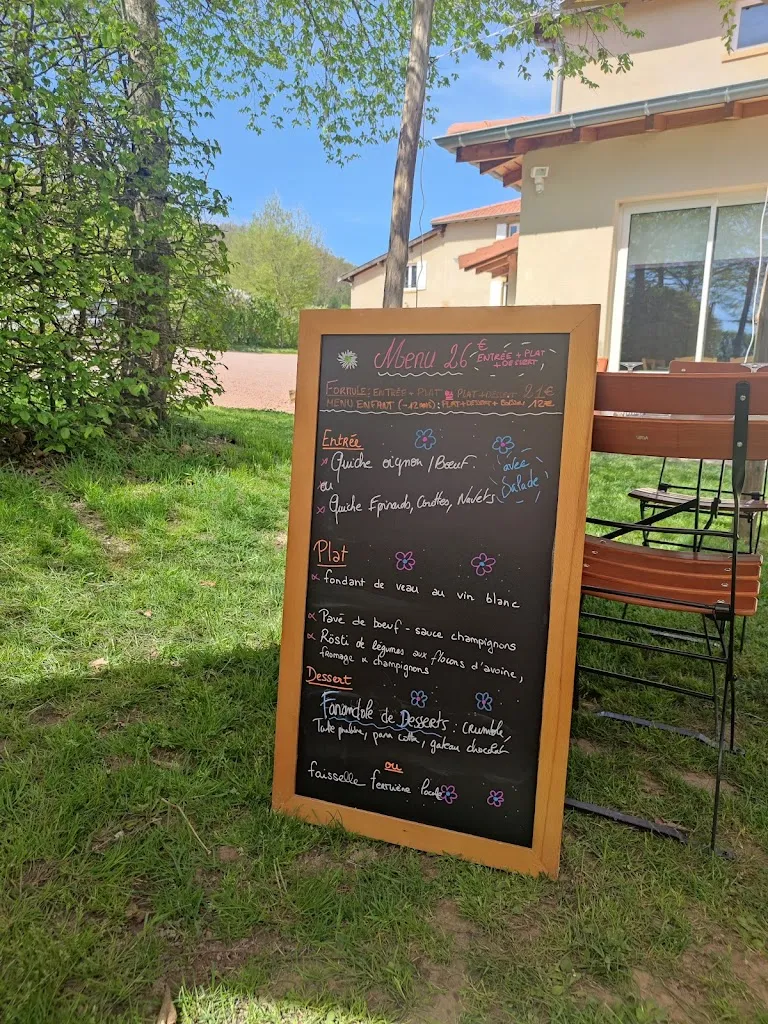 Menu 26 € ENTRÉE + PLAT
+ DESSERT
FORMULE: ENTRÉE + PLAT ou PLAT + DESSERT 21€
MENU ENFANT (-12 ANS): PLAT + DESSERT + BOISSON 12€
Entrée
Quiche oignon / Bœuf
ou
Quiche Epinards, Carottes, Navets
avec
Salade
Plat
fondant de veau au vin blanc
Pavé de bœuf - sauce champignons
Rösti de légumes aux flocons d'avoine,
fromage & champignons
Dessert
Farandole de Desserts : crumble,
Tarte praline, pana cotta, gateau chocolat
ou
faisselle fermière locale